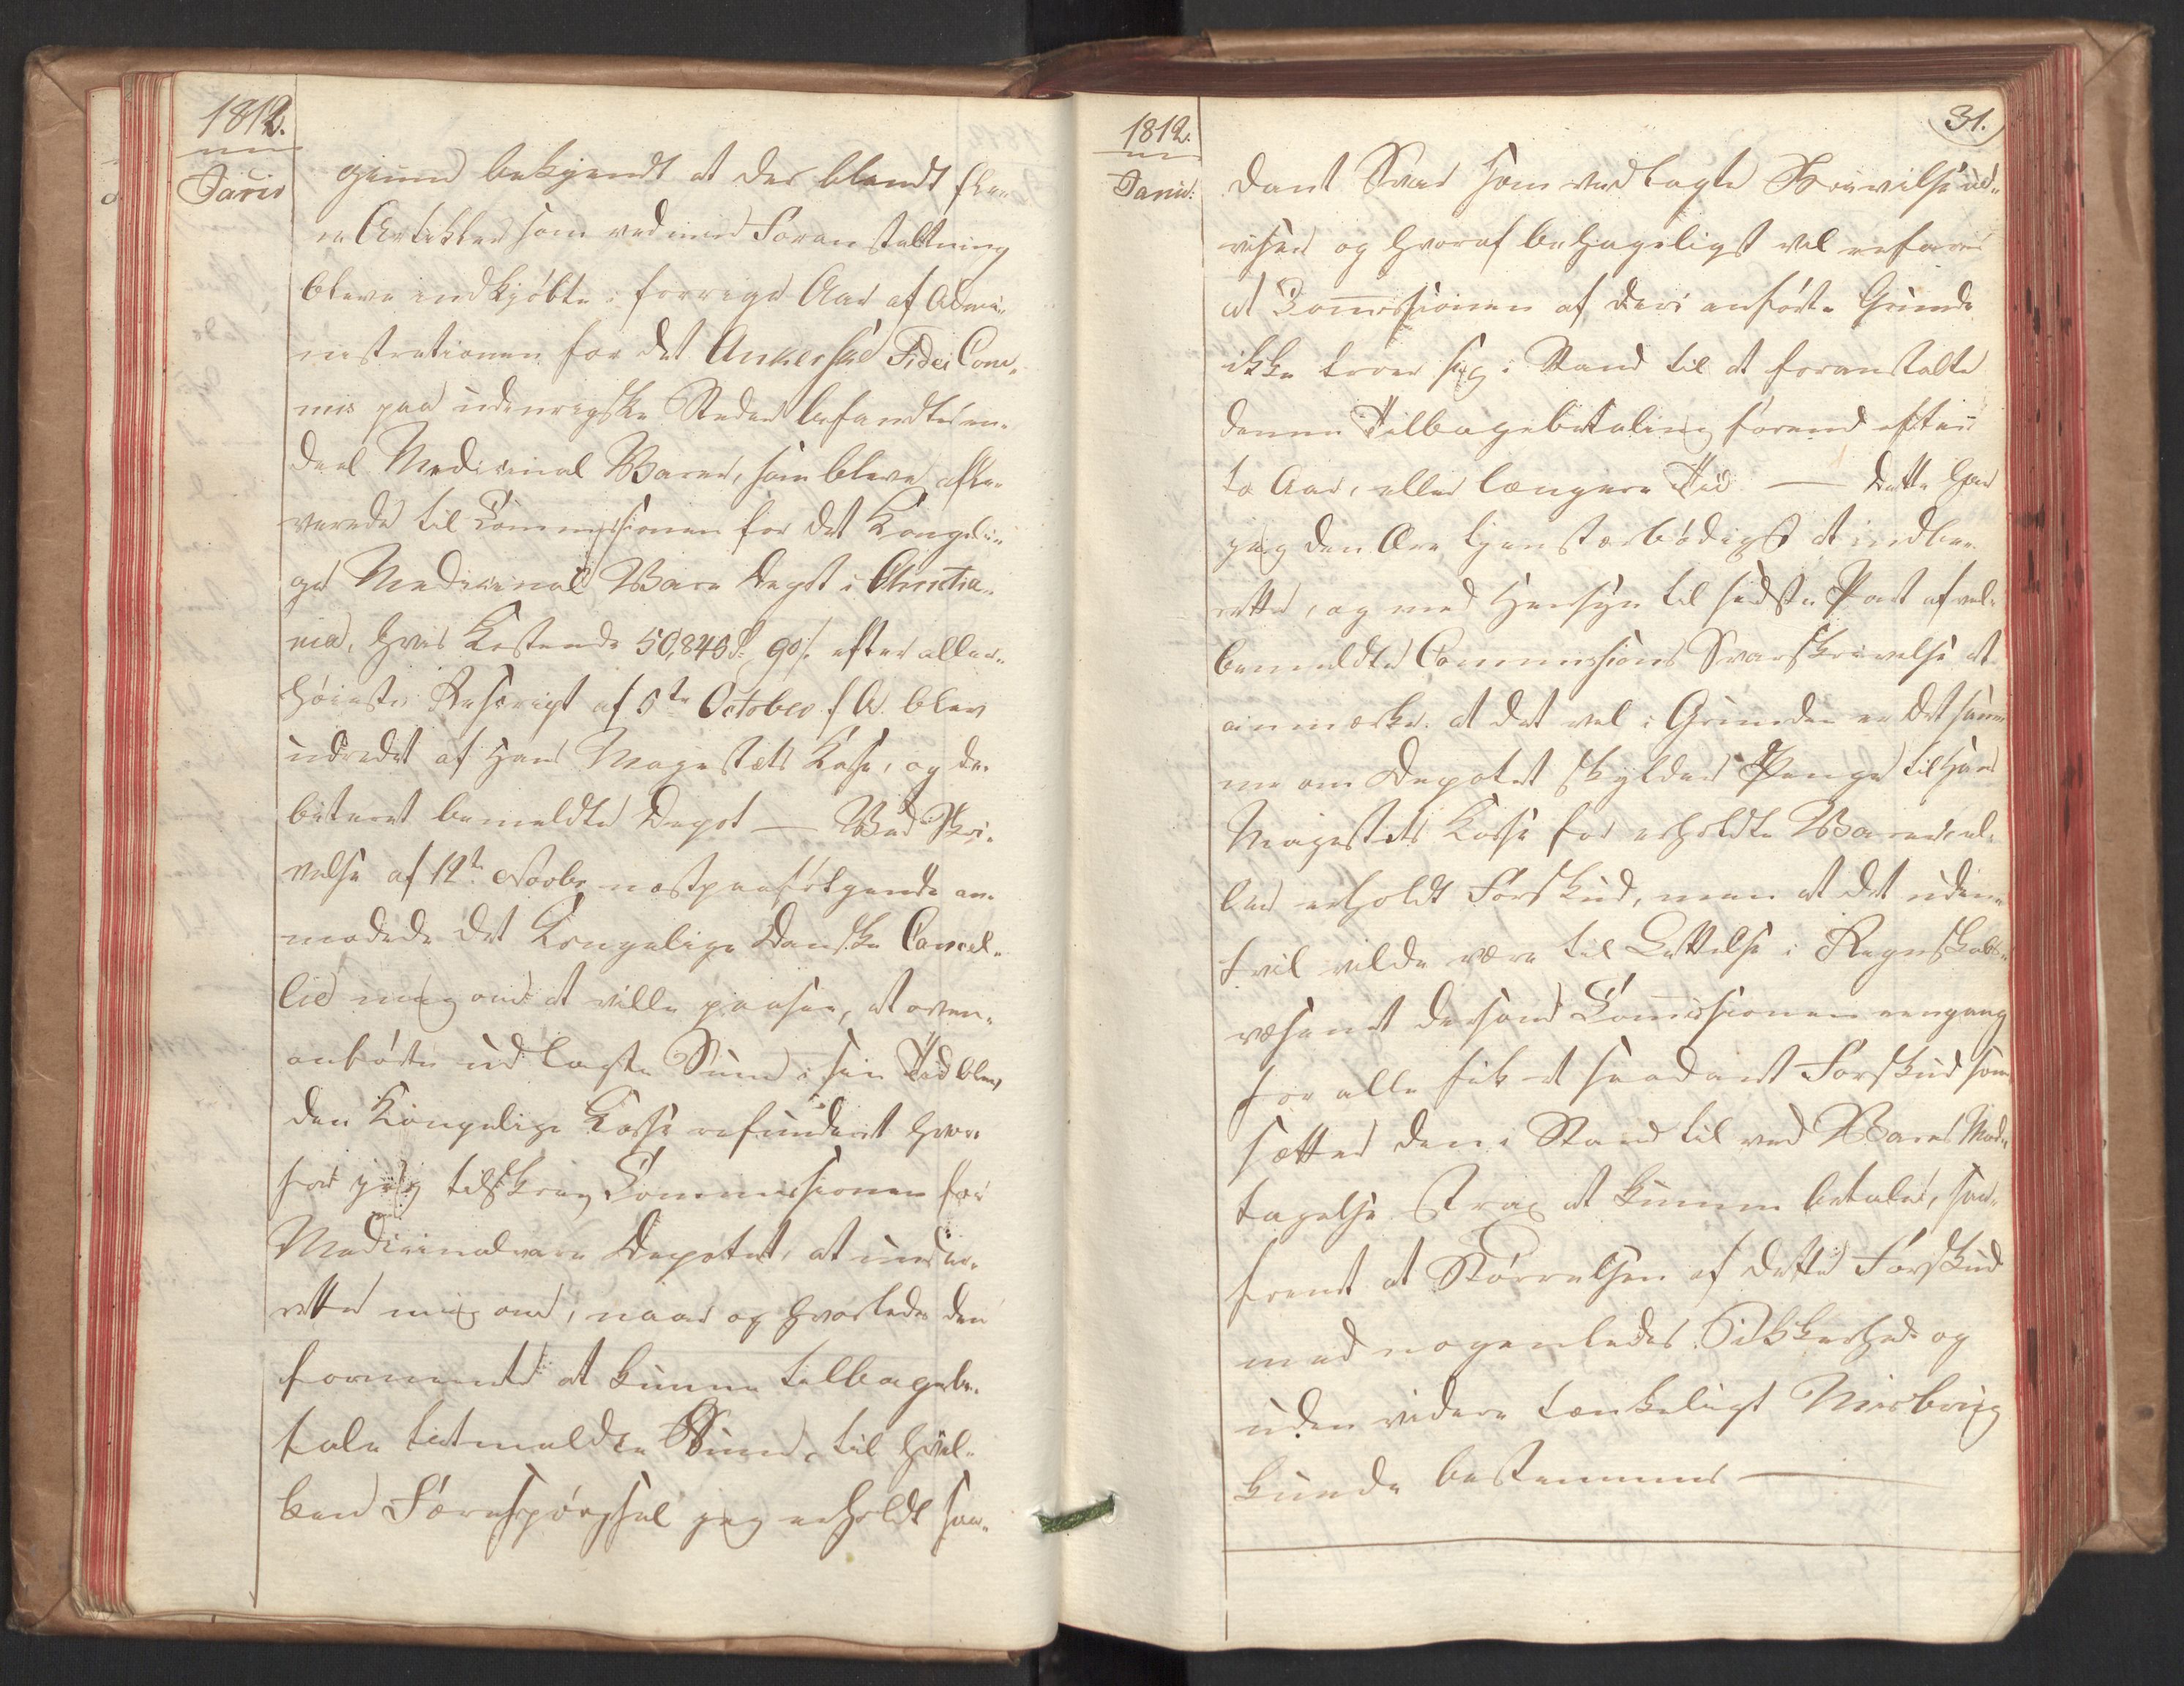 1812.
Janv
gium bekjendt at der blandt fle„
re Artikler som ved min Foranstaltning
bleve indkjöbte i forrige Aar af Admi„
nistrationen for det Ankerske Fidei Com„
mis paa udenrigske Steder befandtes en„
deel Medicinal Varer, som bleve afle„
verede til Commissionen for det Kongeli„
ge Medicinal Vare Depot i Christia„
nia, hvis Kostende 50,846 rd 90 s. efter aller„
höieste Rescript af 5te October f. A. blev
udredet af Hans Majestæts Kasse, og de„
biteret bemeldte Depot — Ved Skri„
velse af 12te Novbr næstpaafölgende an„
modede det Kongelige Danske Cancel„
lie mig om at ville paasee, at oven„
anförte udlagte Sum i sin Tid blev
den Kongelige Kasse refunderet hvor„
for jeg tilskrev Commissionen for
Medicinalvare Depotet, at under„
rette mig om, naar og hvorledes den
formeente at kunne tilbagebe„
tale bemeldte Sum, til hvil„
ken Forespörgsel jeg erholdt saa„
1812.
Janv:
31.
dant Svar som vedlagte Skrivelse ud„
viser og hvoraf behageligst vil erfares
at Commissionen af deri anförte Grunde
ikke troer sig i Stand til at foranstalte
denne Tilbagebetaling förend efter
to Aar, eller længere Tid — Dette har
jeg den Ære tjenstærbödigst at indbe„
rette, og med Hensyn til sidste Post af vel„
bemeldte Commissions Svarskrivelse at
anmærke at det vel i Grunden er det sam„
me om Depotet skylder Penge til Hans
Majestæts Kasse for erholdte Varer el„
ler erholdt Forskud, men at det uden
Tvil vilde være til Lettelse i Regnskabs„
væsenet dersom Commissionen eengang
for alle fik et saadant Forskud som
sætter den i Stand til ved Vares Mod„
tagelse strax at kunne betale, saa„
fremt at Störrelsen af dette Forskud
med nogenledes Sikkerhed og
uden videre tænkeligt Misbrug
kunde bestemmes —